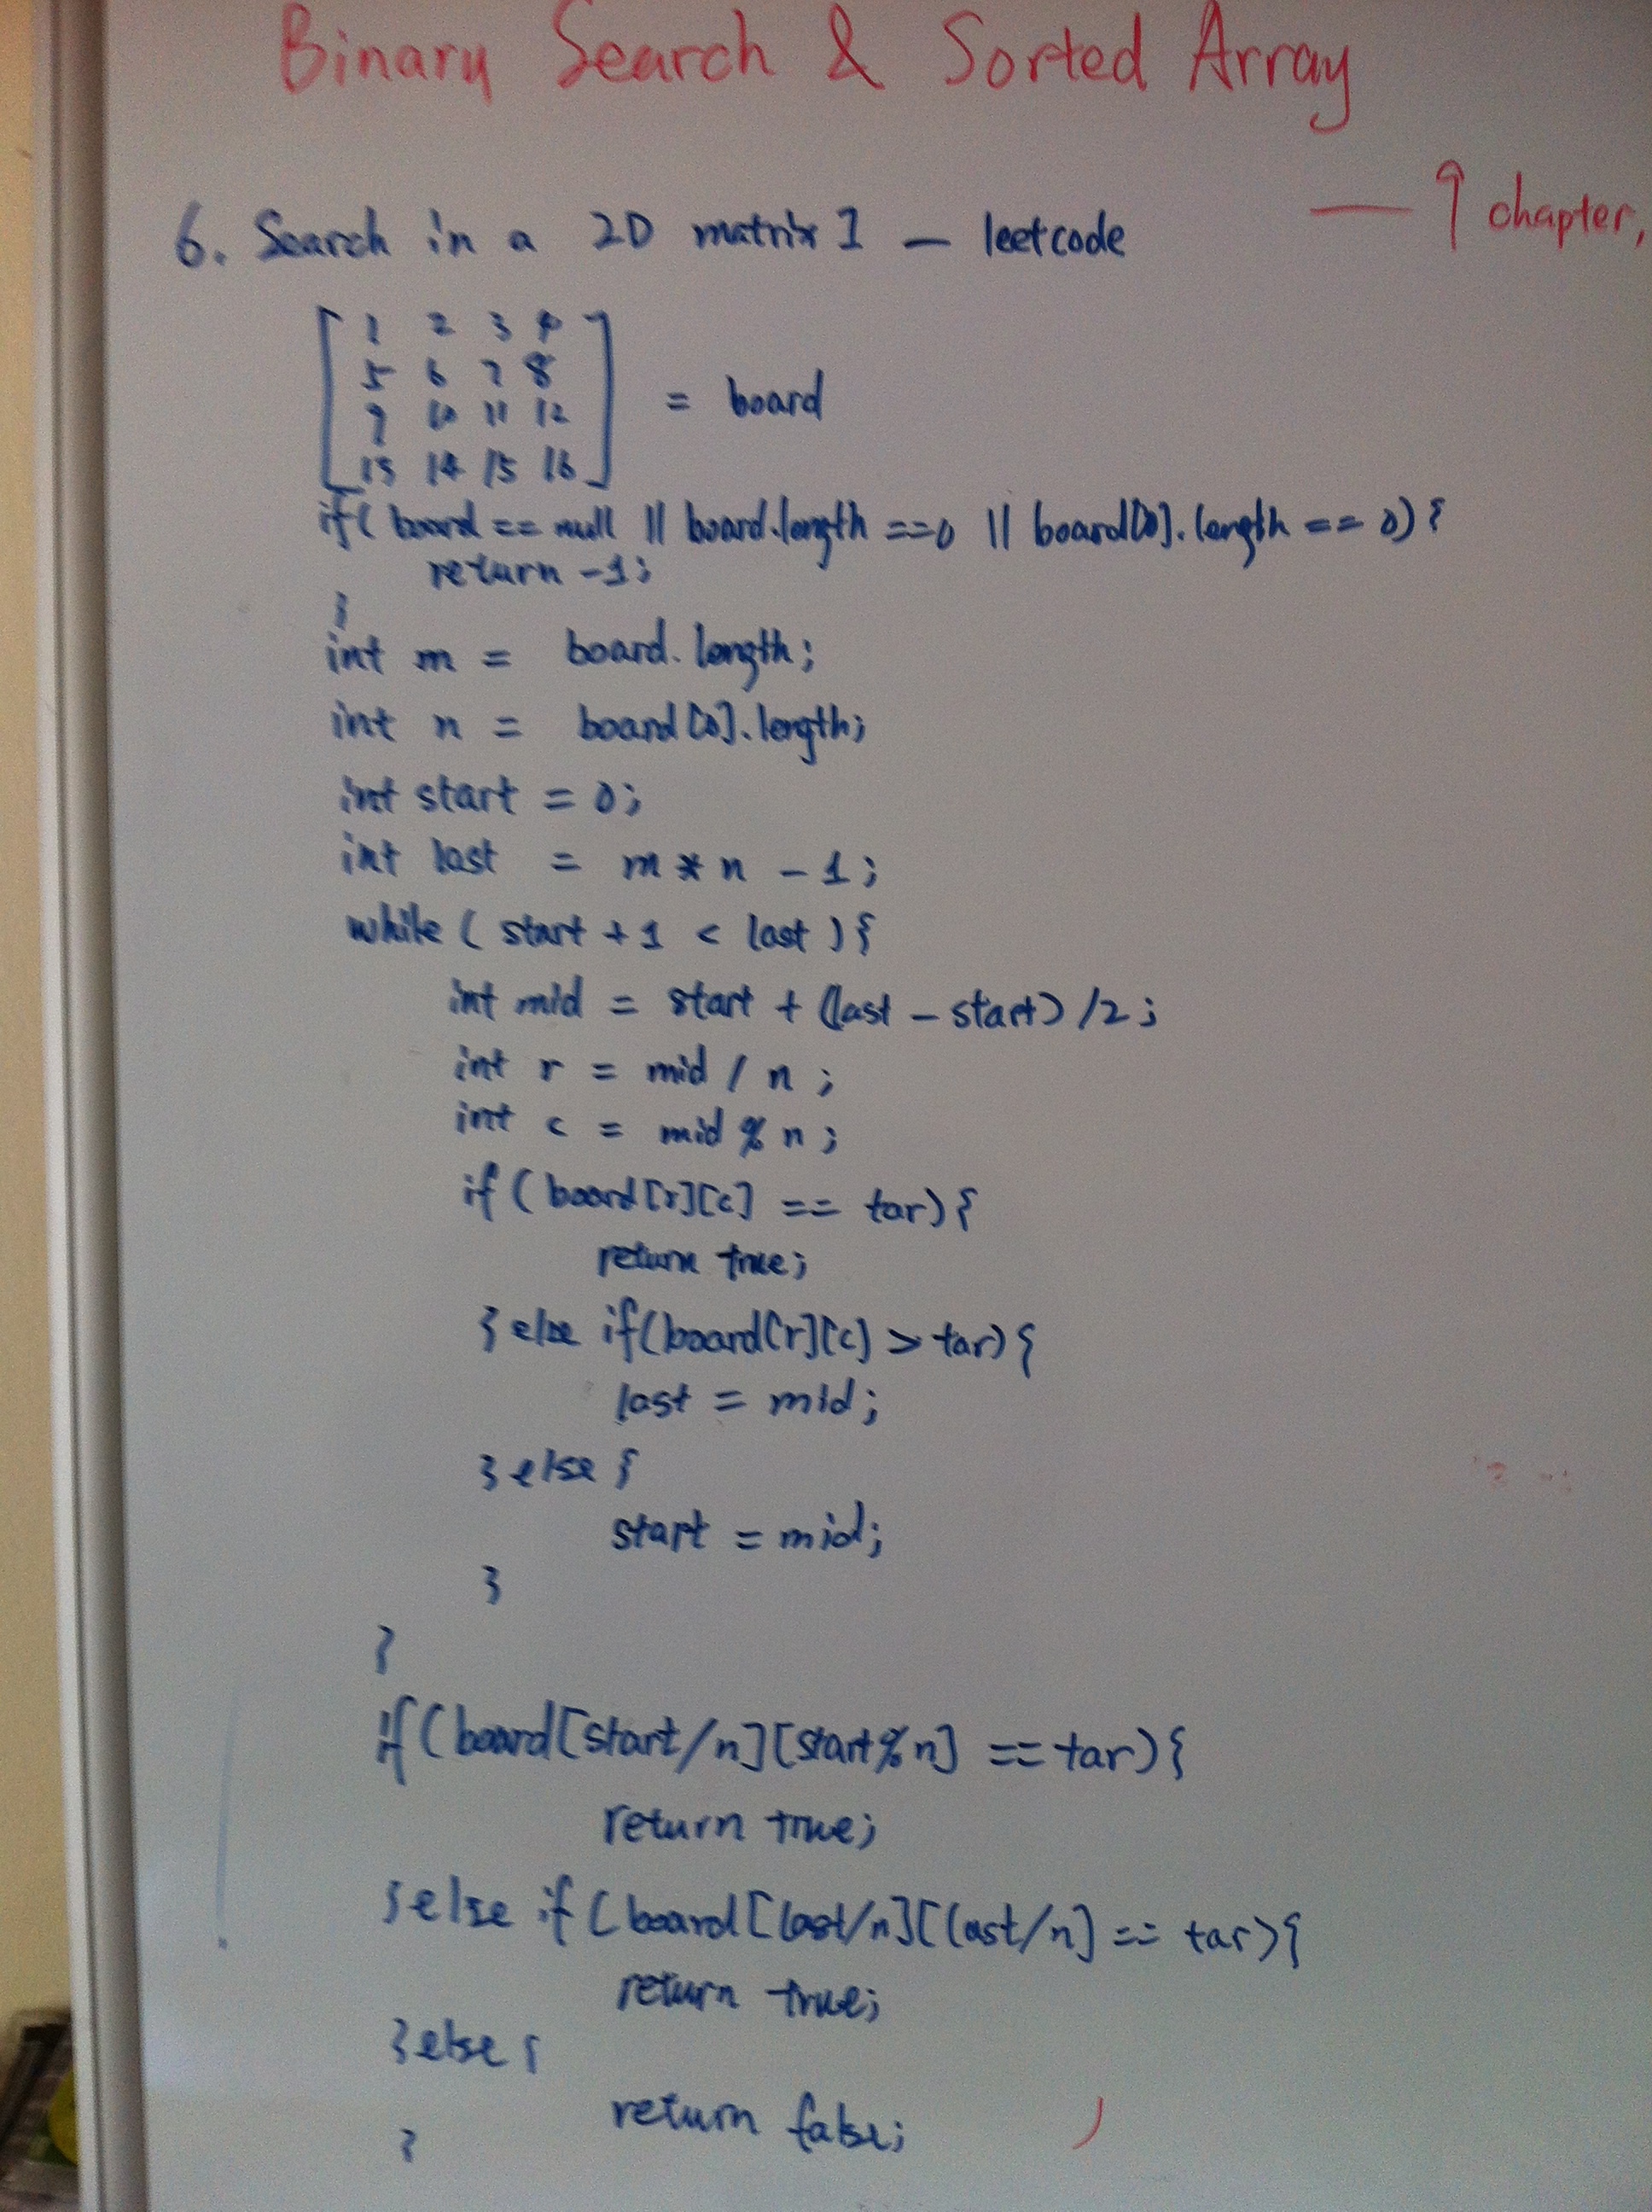 Binary Search & Sorted Array
— 9 chapter,
6. Search in a 2D matrix I — leetcode
1 2 3 4
5 6 7 8
9 10 11 12
13 14 15 16
= board
if( board == null || board.length ==0 || board[0].length == 0){
return -1;
}
int m = board.length;
int n = board[0].length;
int start = 0;
int last = m * n - 1;
while ( start + 1 < last ){
int mid = start + (last - start) /2;
int r = mid / n ;
int c = mid % n ;
if ( board[r][c] == tar){
return true;
} else if(board[r][c] > tar){
last = mid;
} else {
start = mid;
}
}
if (board[start/n][start%n] == tar){
return true;
} else if (board[last/n][last/n] == tar){
return true;
} else {
return false;
}